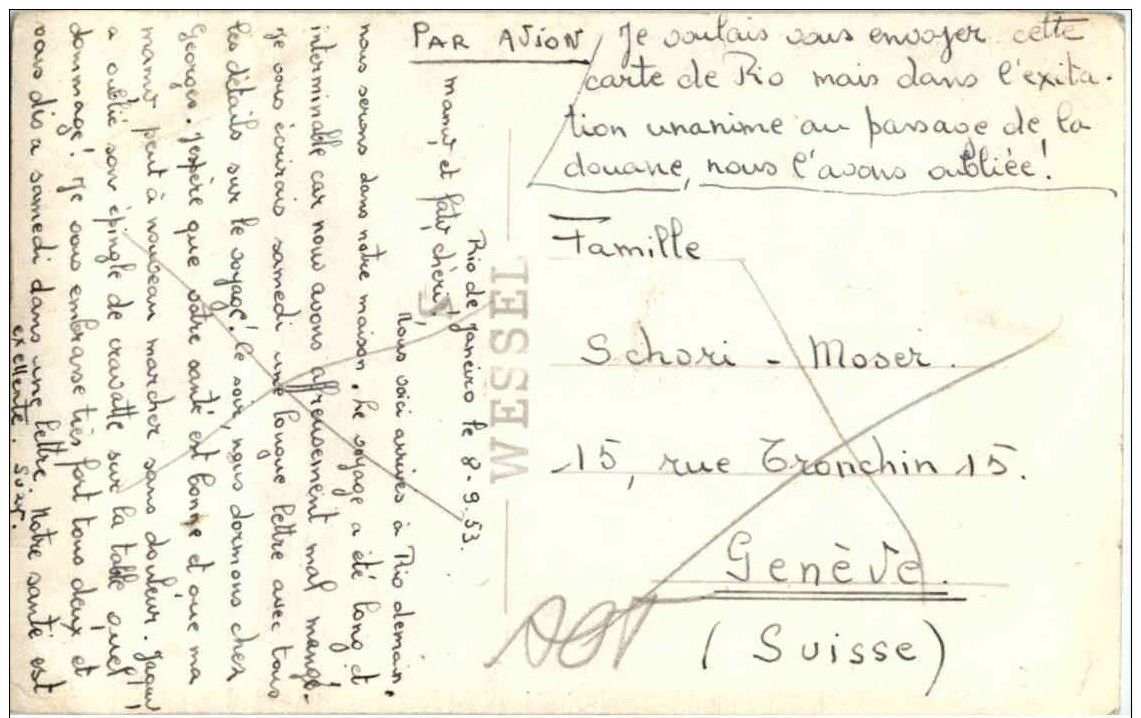 PAR AVION
Je voulais vous envoyer cette
carte de Rio mais dans l'exita-
tion unanime au passage de la
douane, nous l'avons oubliée!
Famille
Schori - Moser.
15, rue Tronchin 15.
Genève.
(Suisse)
WESSEL
Rio de Janeiro le 8.9.53.
mamy et faty chéris!
Nous voici arrivés à Rio demain,
nous serons dans notre maison. Le voyage a été long et
interminable car nous avons affreusement mal mangé.
Je vous écrirais samedi une longue lettre avec tous
les détails sur le voyage! Ce soir, nous dormons chez
Georges. J'espère que votre santé est bonne et que ma
mamy peut à nouveau marcher sans douleur.
a oublié son épingle de cravatte sur la table quel
dommage! Je vous embrasse très fort tous deux et
vous dis a samedi dans une lettre. Notre santé est
exellente. Suzy.